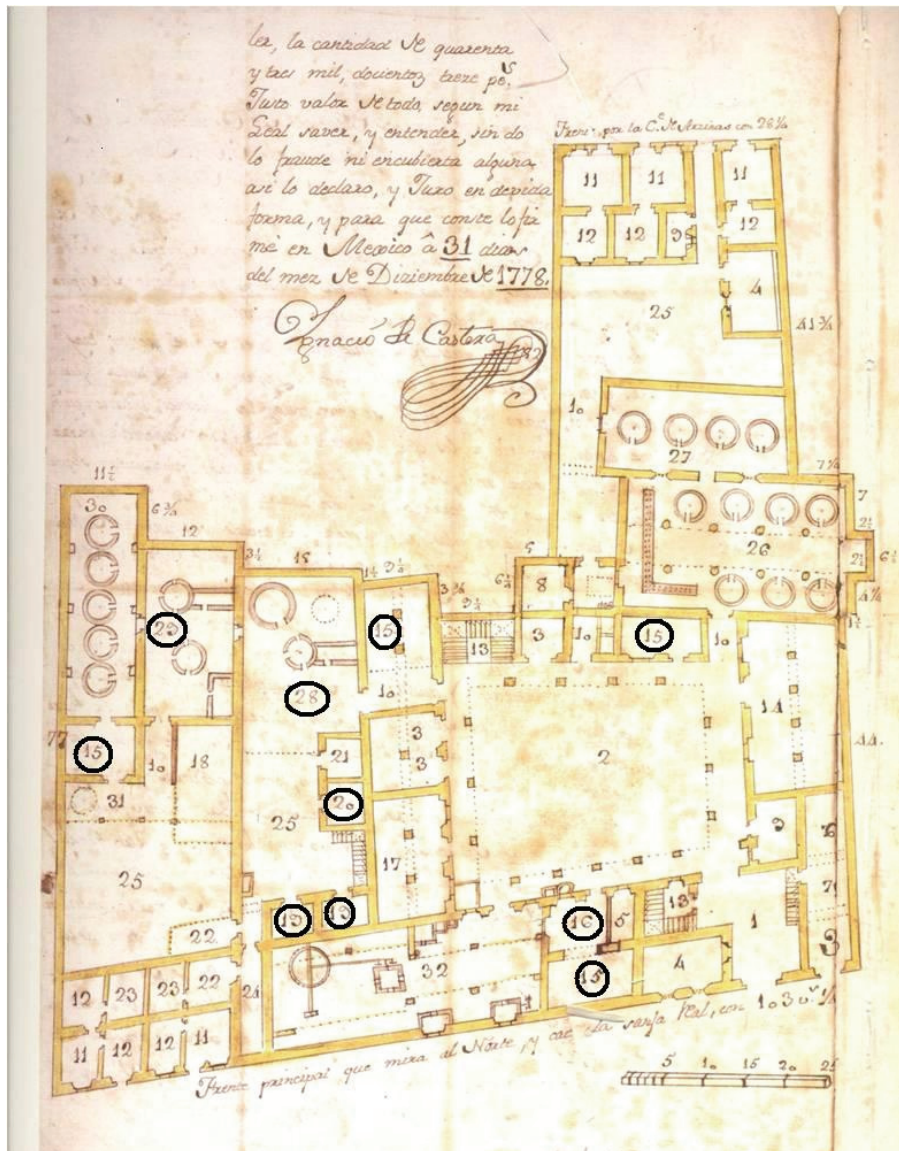 ler, la cantidad de quarenta
y tres mil, docientos treze pe.s
Justo valor de todo, segun mi
Leal saver, y entender, sin do
lo fraude ni encubierta alguna
asi lo declaro, y Juro en devida
forma, y para que conste lo fir
mé en Mexico â 31 dias
del mez de Diziembre de 1778.
Ignacio de Castera
por la C.e de 26 1/2
11 11 11
12 12 9 12
4
25
41 3/4
10
27
7 1/4
11 1/2
6 3/4
12
30
7
2 1/2
26
3 1/2
18
1 1/2
5
8
29
15
13
3
10
15
10
28
10
14
77
15
10
18
21
3
3
2
44
31
20
25
25
17
9
6
7
19
19
16
5
13
1
22
32
15
4
3
12 23 23 22
24
11 12 12 11
Frente principal que mira al Norte, y cae â la sanja Real, con 103 v.s 1/4
5 10 15 20 25